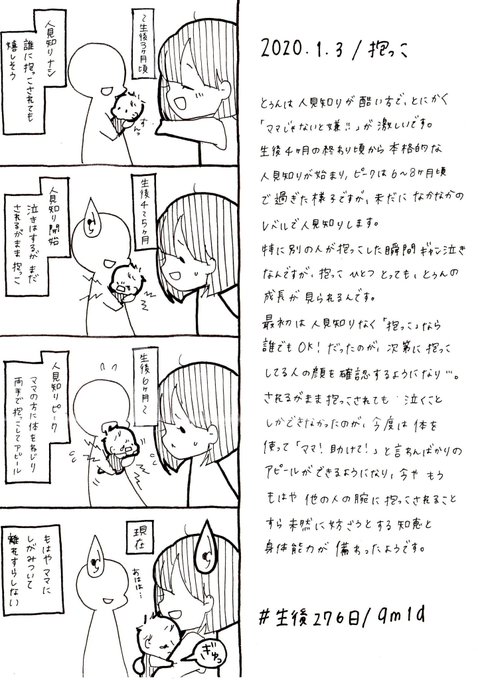 〜生後3ヶ月頃
人見知りナシ
誰に抱っこされても
嬉しそう
すんっ
生後4〜5ヶ月
人見知り開始
泣きはするが まだ
されるがまま 抱っこ
生後6ヶ月〜
人見知りピーク
ママの方に体をねじり
両手で抱っこしてアピール
現在
もはやママに
しがみついて
離れすらしない
あはは…
ぎゅっ
2020.1.3/抱っこ
とぅんは人見知りが酷い方で、とにかく
「ママじゃないと嫌!!」が激しいです。
生後4ヶ月の終わり頃から本格的な
人見知りが始まり、ピークは6〜8ヶ月頃
で過ぎた様子ですが、未だになかなかの
レベルで人見知りします。
特に別の人が抱っこした瞬間ギャン泣き
なんですが、抱っこ ひとつ とっても、とぅんの
成長が見られるんです。
最初は人見知りなく「抱っこ」なら
誰でもOK!だったのが、次第に抱っこ
してる人の顔を確認するようになり…。
されるがまま抱っこされても 泣くこと
しかできなかったのが、今度は体を
使って「ママ!助けて!」と言わんばかりの
アピールができるようになり、今や もう
もはや 他の人の腕に抱っこされること
すら未然に防ごうとする知恵と
身体能力が 備わったようです。
#生後276日/9m1d